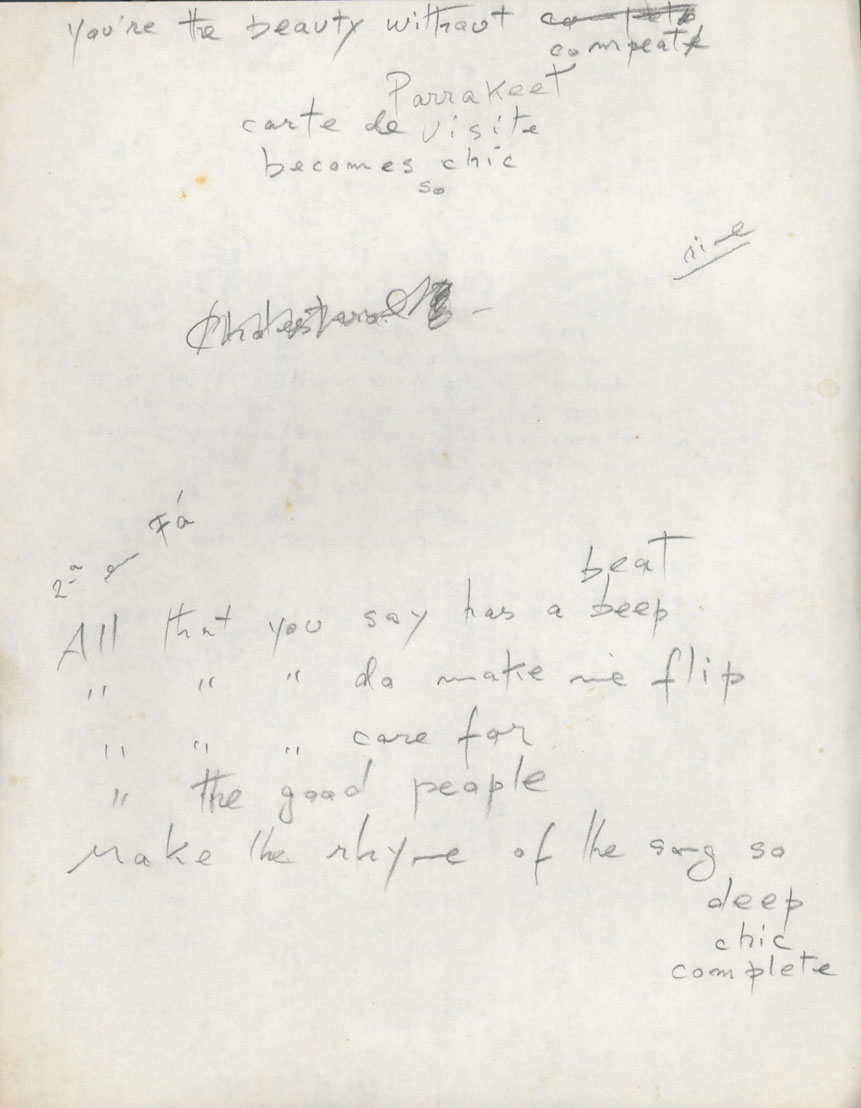 You're the beauty without
compeat
Parrakeet
carte de visite
becomes chic
so
Fá
2ª e
beat
All that you say has a beep
" " " do make me flip
" " " care for
" the good people
Make the rhyme of the song so
deep
chic
complete